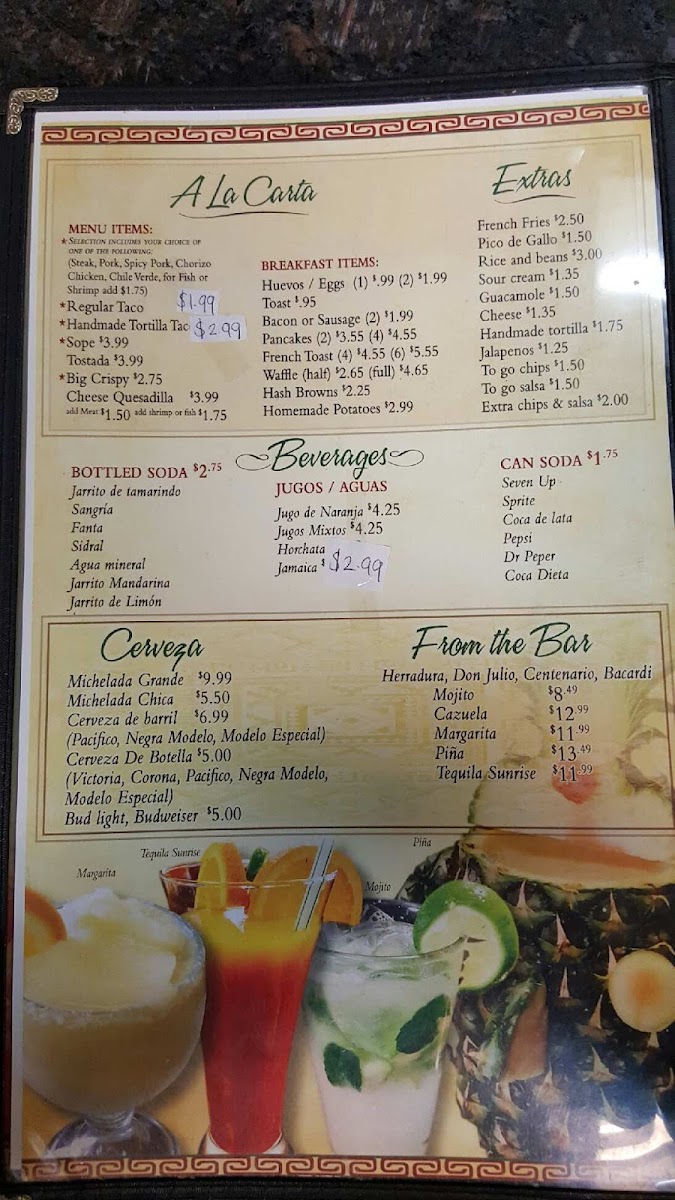 A La Carta
MENU ITEMS:
*SELECTION INCLUDES YOUR CHOICE OF
ONE OF THE FOLLOWING:
(Steak, Pork, Spicy Pork, Chorizo
Chicken, Chile Verde, for Fish or
Shrimp add $1.75)
*Regular Taco $1.99
*Handmade Tortilla Taco $2.99
*Sope $3.99
Tostada $3.99
*Big Crispy $2.75
Cheese Quesadilla $3.99
add Meat $1.50 add shrimp or fish $1.75
BREAKFAST ITEMS:
Huevos / Eggs (1) $.99 (2) $1.99
Toast $.95
Bacon or Sausage (2) $1.99
Pancakes (2) $3.55 (4) $4.55
French Toast (4) $4.55 (6) $5.55
Waffle (half) $2.65 (full) $4.65
Hash Browns $2.25
Homemade Potatoes $2.99
Extras
French Fries $2.50
Pico de Gallo $1.50
Rice and beans $3.00
Sour cream $1.35
Guacamole $1.50
Cheese $1.35
Handmade tortilla $1.75
Jalapenos $1.25
To go chips $1.50
To go salsa $1.50
Extra chips & salsa $2.00
Beverages
BOTTLED SODA $2.75
Jarrito de tamarindo
Sangría
Fanta
Sidral
Agua mineral
Jarrito Mandarina
Jarrito de Limón
JUGOS / AGUAS
Jugo de Naranja $4.25
Jugos Mixtos $4.25
Horchata
Jamaica $ $2.99
CAN SODA $1.75
Seven Up
Sprite
Coca de lata
Pepsi
Dr Peper
Coca Dieta
Cerveza
Michelada Grande $9.99
Michelada Chica $5.50
Cerveza de barril $6.99
(Pacifico, Negra Modelo, Modelo Especial)
Cerveza De Botella $5.00
(Victoria, Corona, Pacifico, Negra Modelo,
Modelo Especial)
Bud light, Budweiser $5.00
From the Bar
Herradura, Don Julio, Centenario, Bacardi
Mojito $8.49
Cazuela $12.99
Margarita $11.99
Piña $13.49
Tequila Sunrise $11.99
Margarita
Tequila Sunrise
Mojito
Piña